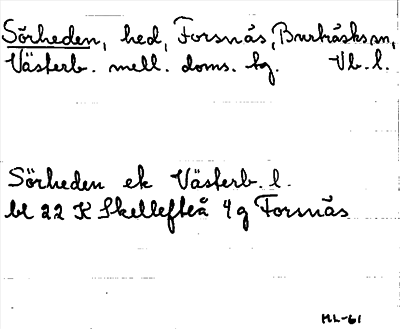 Sörheden, hed, Forsnäs, Burträsks sn,
Västerb. mell. doms. tg. Vb. l.
Sörheden ek Västerb. l.
bl 22 K Skellefteå 4g Forsnäs
ML-61